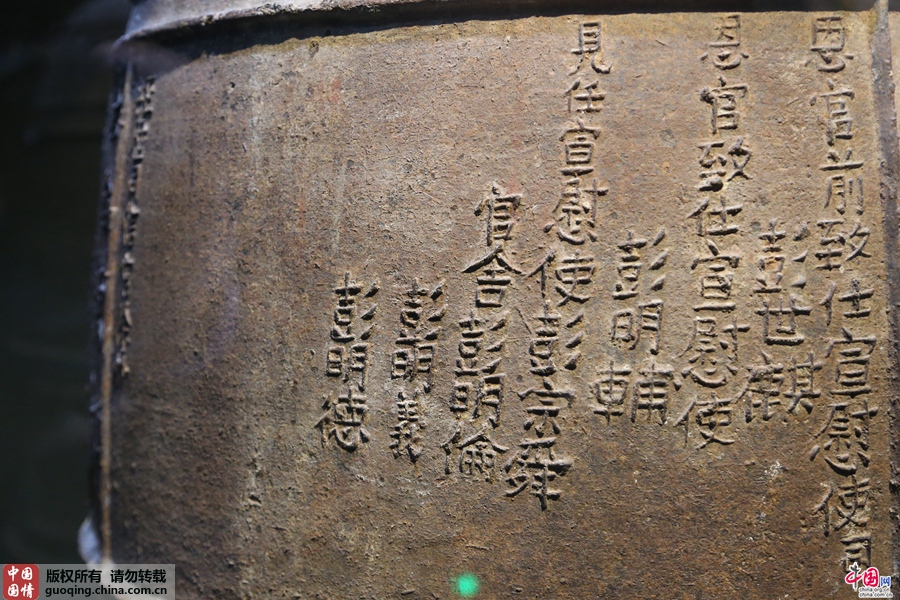 恩官前致仕宣慰使司
彭世麒
恩官致仕宣慰使
彭明輔
見任宣慰使彭宗舜
官舍彭明倫
彭明義
彭明德
中国国情
版权所有 请勿转载
guoqing.china.com.cn
中国网
china.org.cn
china.com.cn